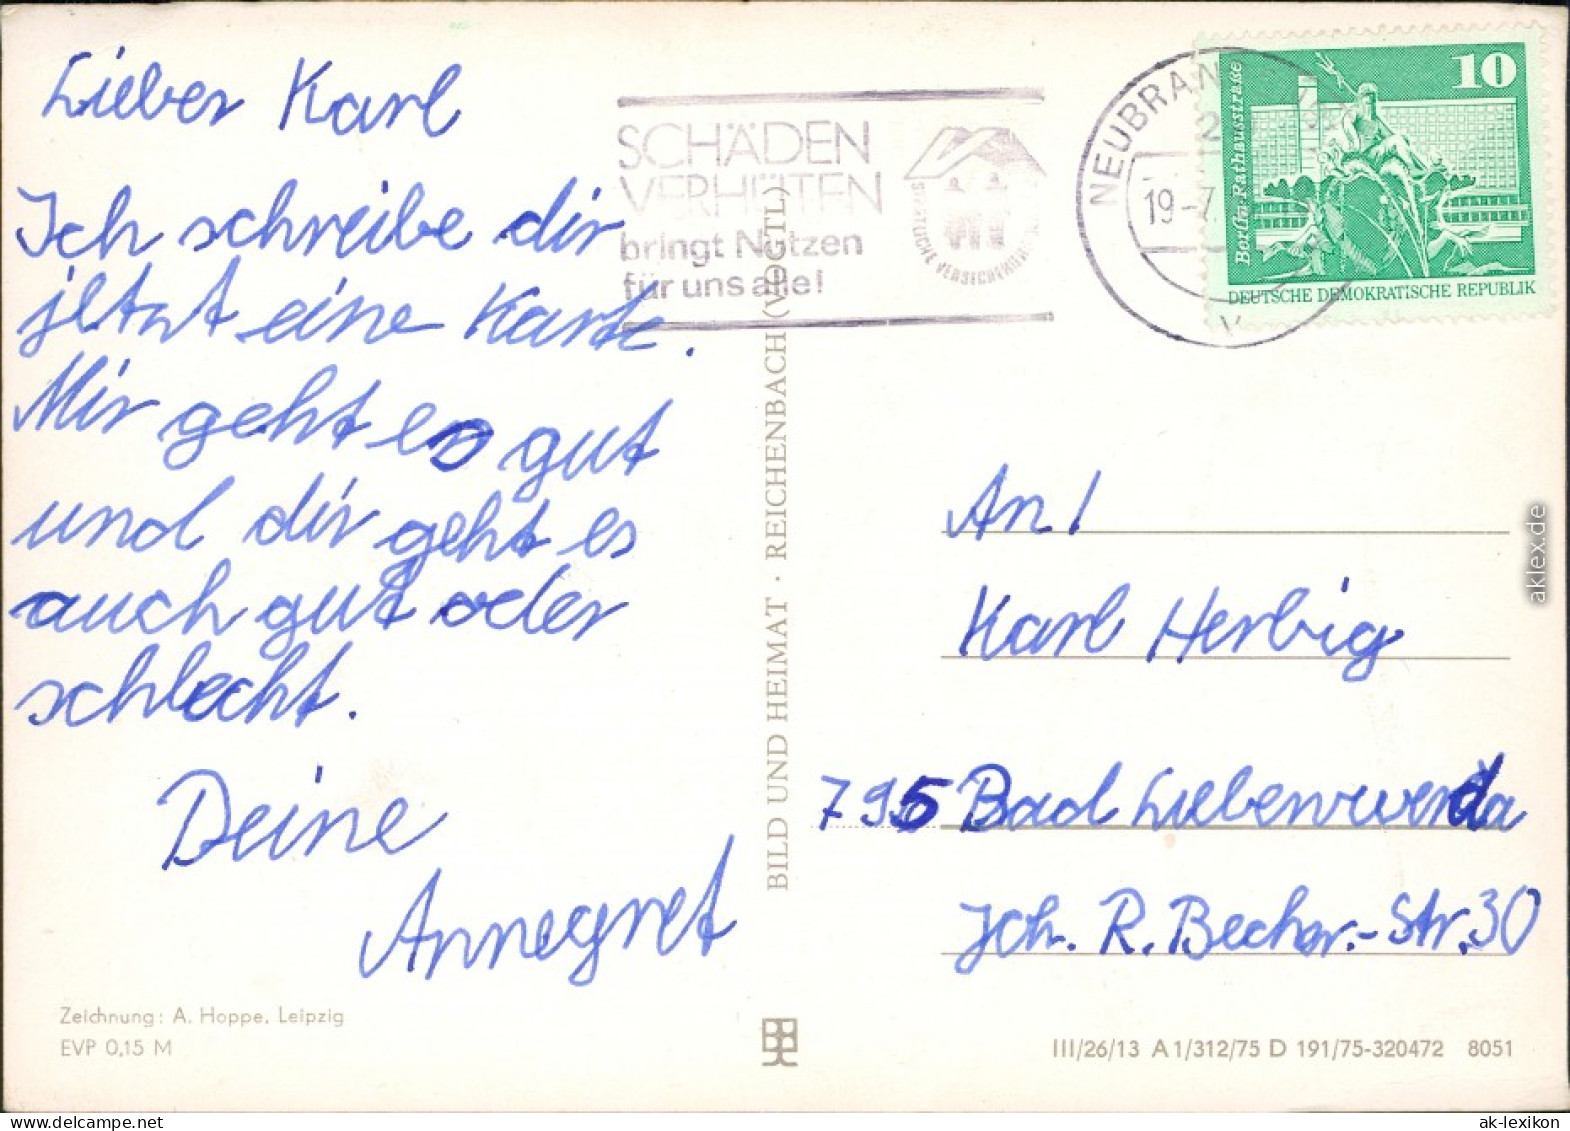 Lieber Karl
Ich schreibe dir
jetzt eine Karte.
Mir geht es gut
und dir geht es
auch gut oder
schlecht.
Deine
Annegret
Zeichnung: A. Hoppe, Leipzig
EVP 0,15 M
BILD UND HEIMAT · REICHENBACH (VOGTL)
SCHÄDEN
VERHÜTEN
bringt Nutzen
für uns alle!
STAATLICHE
NEUBRAN
19-7
10
Berlin-Rathausstraße
DEUTSCHE DEMOKRATISCHE REPUBLIK
An /
Karl Herbig
795 Bad Liebenwerda
Joh. R. Becher-Str. 30
III/26/13 A 1/312/75 D 191/75-320472 8051
aklex.de
delcampe.net
ak-lexikon